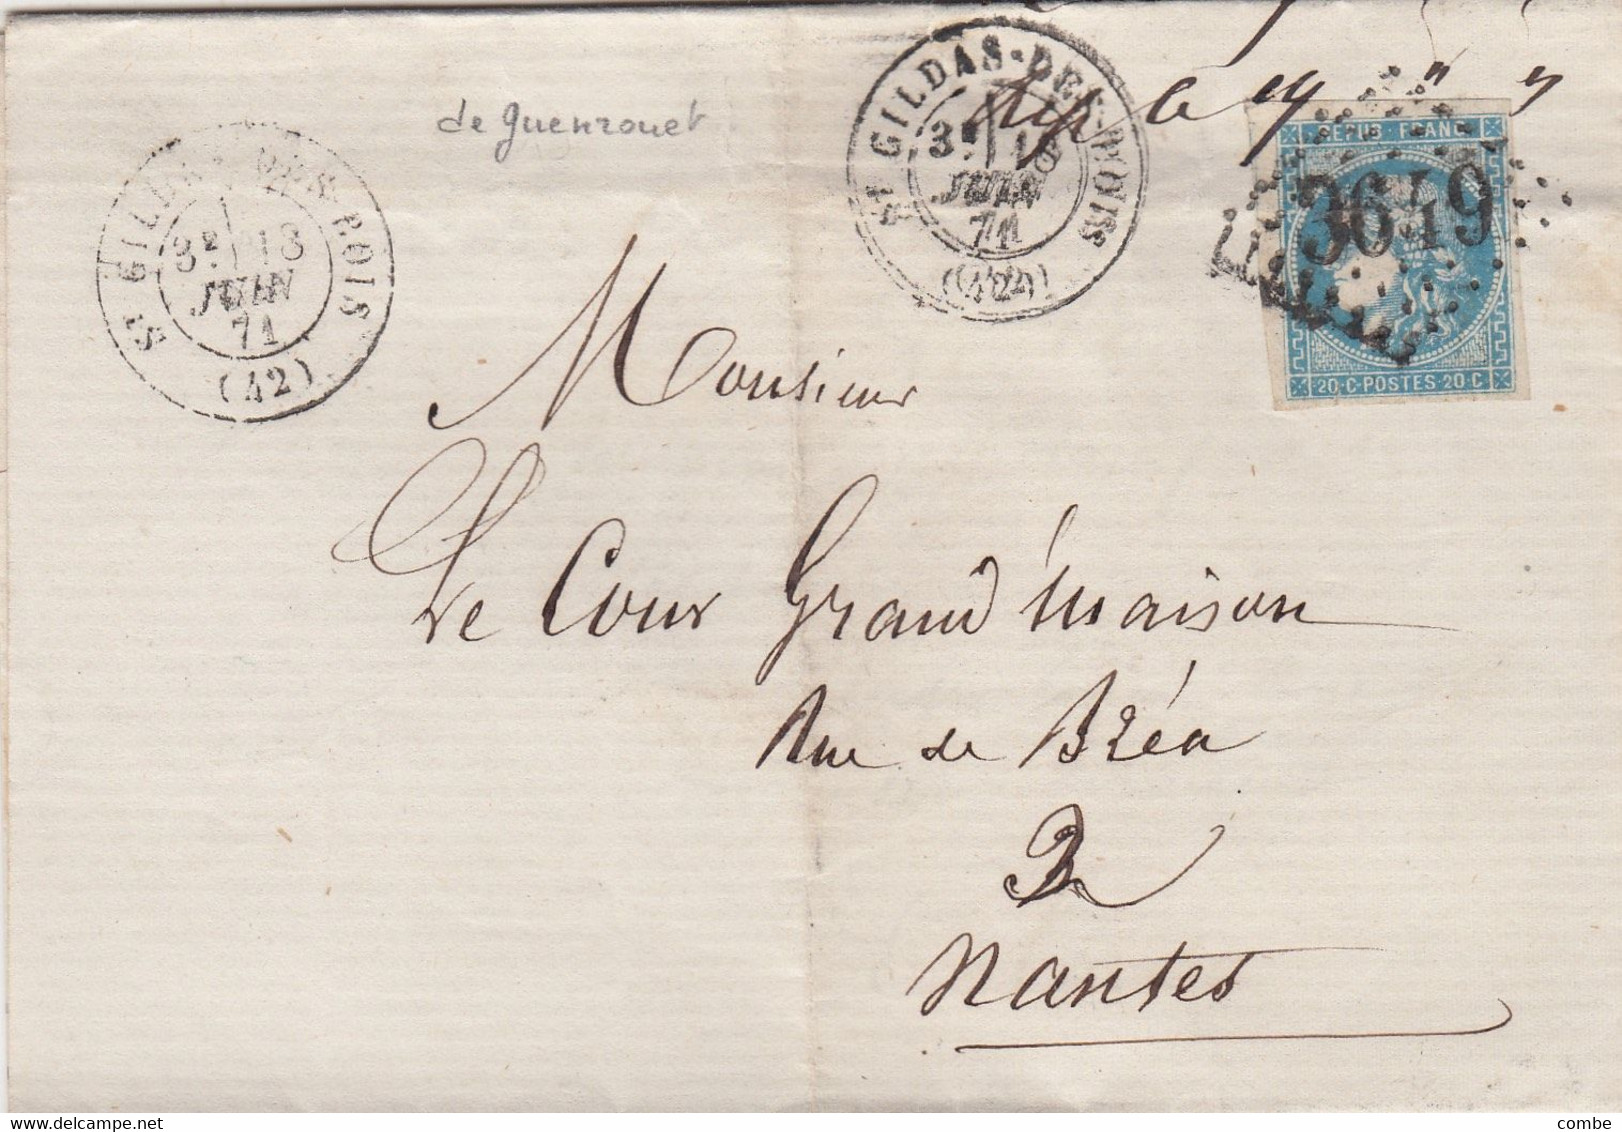 de Guenrouet
ST GILDAS-DES-BOIS
3E 18
JUIN
71
(42)
ST GILDAS-DES-BOIS
3E
JUIN
71
(42)
REPUB · FRANC
3649
20·C·POSTES·20·C
Monsieur
Le Cour Grand'maison
Rue de Bréa
2
Nantes
combe